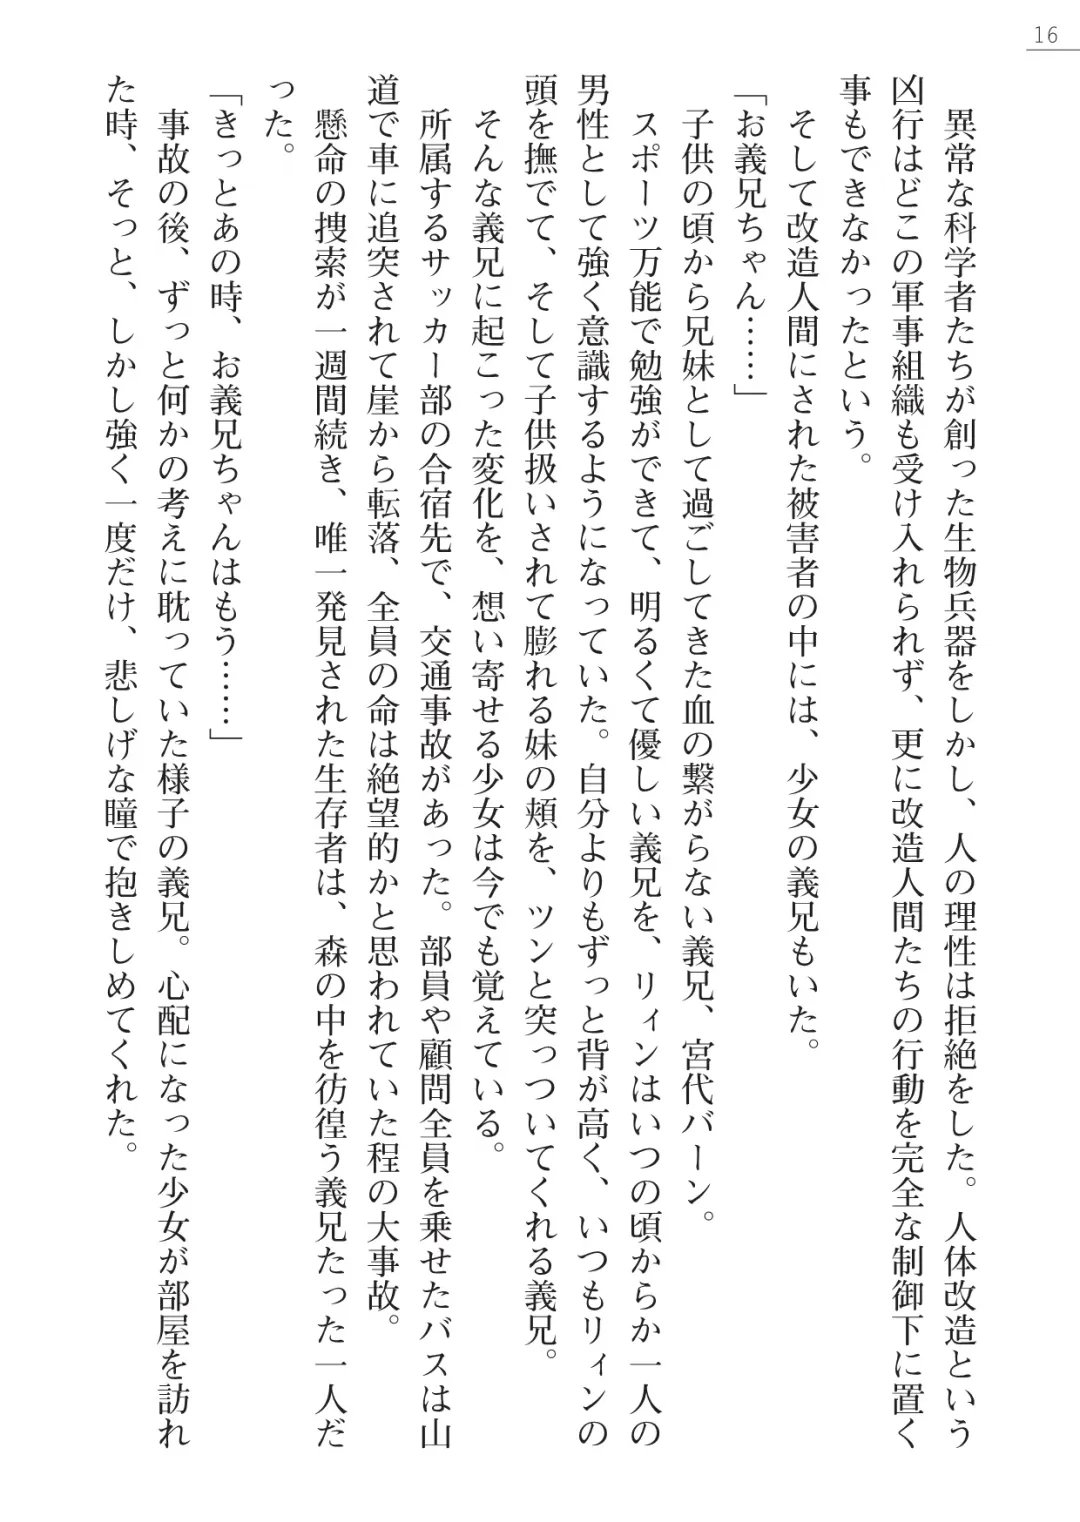 16
　異常な科学者たちが創った生物兵器をしかし、人の理性は拒絶をした。人体改造という
凶行はどこの軍事組織も受け入れられず、更に改造人間たちの行動を完全な制御下に置く
事もできなかったという。
　そして改造人間にされた被害者の中には、少女の義兄もいた。
「お義兄ちゃん……」
　子供の頃から兄妹として過ごしてきた血の繋がらない義兄、宮代バーン。
　スポーツ万能で勉強ができて、明るくて優しい義兄を、リィンはいつの頃からか一人の
男性として強く意識するようになっていた。自分よりもずっと背が高く、いつもリィンの
頭を撫でて、そして子供扱いされて膨れる妹の頬を、ツンと突っついてくれる義兄。
　そんな義兄に起こった変化を、想い寄せる少女は今でも覚えている。
　所属するサッカー部の合宿先で、交通事故があった。部員や顧問全員を乗せたバスは山
道で車に追突されて崖から転落、全員の命は絶望的かと思われていた程の大事故。
　懸命の捜索が一週間続き、唯一発見された生存者は、森の中を彷徨う義兄たった一人だ
った。
「きっとあの時、お義兄ちゃんはもう……」
　事故の後、ずっと何かの考えに耽っていた様子の義兄。心配になった少女が部屋を訪れ
た時、そっと、しかし強く一度だけ、悲しげな瞳で抱きしめてくれた。